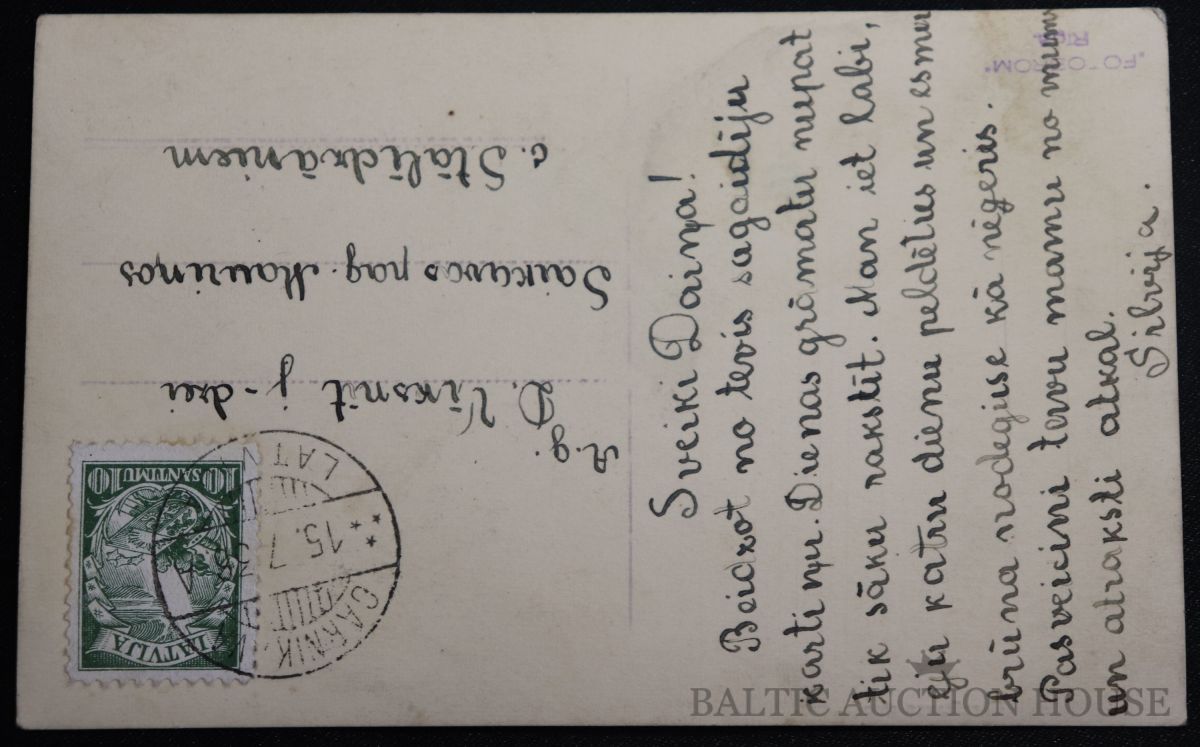 Sveiki Daiņa!
Beidzot no tevis sagaidīju
karti ņu. Dienas grāmatu nupat
tik sāku rakstīt. Man iet labi,
eju katru dienu peldēties un esmu
brūna nodeguse kā nēģeris.
Pasveicini tevu mamu no mum
un atraksti atkal.
Silvija.
A.g.
D. Vīksnīt j-dzei
Saikavas pag. Mauriņos
c. Stālidzāniem
LATVIJA
10 SANTIMU 10
CARNIK
LATV
15. 7. 38
RĪGA
BALTIC AUCTION HOUSE